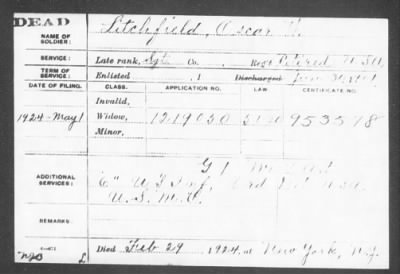 DEAD
NAME OF SOLDIER: Litchfield, Oscar
SERVICE: Late rank, Sgt Co. Reg't Retired U.S.A.
TERM OF SERVICE: Enlisted , 1 Discharged
DATE OF FILING. CLASS. APPLICATION NO. LAW CERTIFICATE NO.
Invalid,
1924-May 1 Widow, 1219030 953578
Minor,
ADDITIONAL SERVICES:
6" U.S. Inf,
U.S.M.C.
REMARKS:
Died Feb 29, 1924, at New York, N.Y.